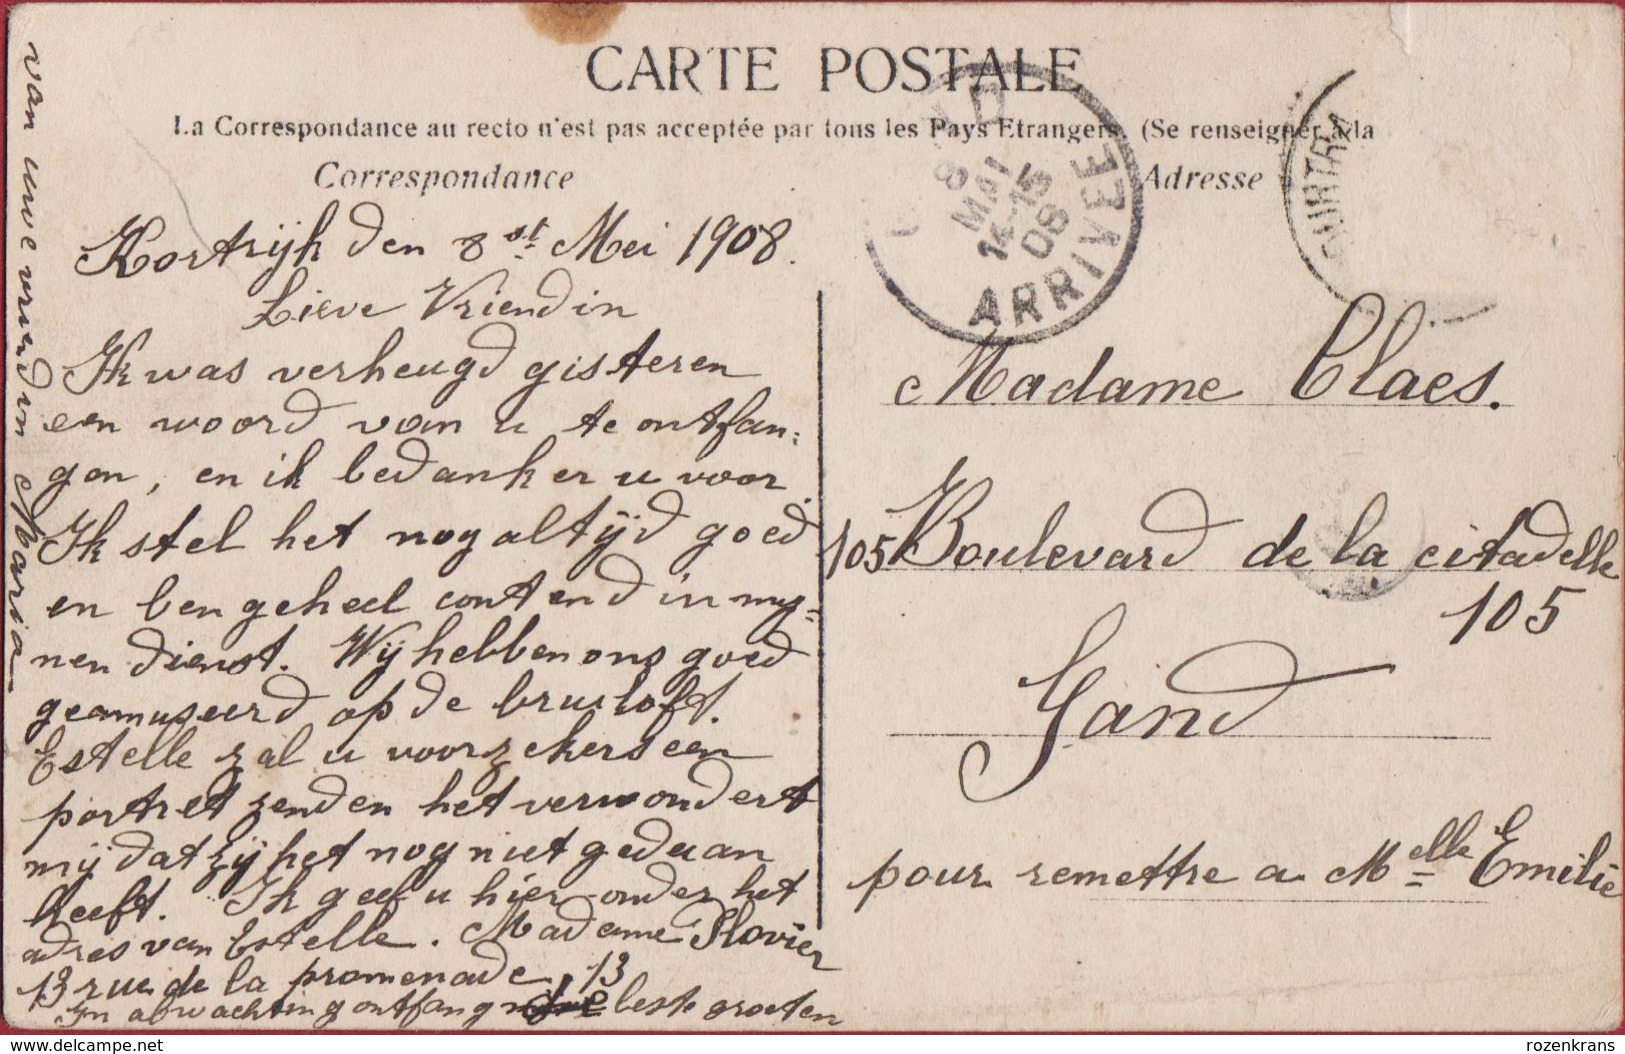 CARTE POSTALE
La Correspondance au recto n'est pas acceptée par tous les Pays Etrangers. (Se renseigner à la
Correspondance
Adresse
8
MAI
14-15
08
ARRIVEE
COURTRA
Kortrijk den 8st Mei 1908.
Lieve Vriendin
Ik was verheugd gisteren
een woord van u te ontfan=
gen, en ik bedanker u voor.
Ik stel het nog altijd goed
en ben geheel contend in my=
nen dienst. Wij hebben ons goed
geamuseerd op de bruiloft.
Estelle zal u voorzekers een
portret zenden het verwondert
mij dat zij het nog niet gedaan
heeft. Ik geef u hier onder het
adres van Estelle. Madame Plovier
13 rue de la promenade 13
In abwachting ontfang de beste groeten
van uwe vriendin Maria
Madame Claes.
105 Boulevard de la citadelle
105
Gand
pour remettre a Melle Emilie
delcampe.net
rozenkrans